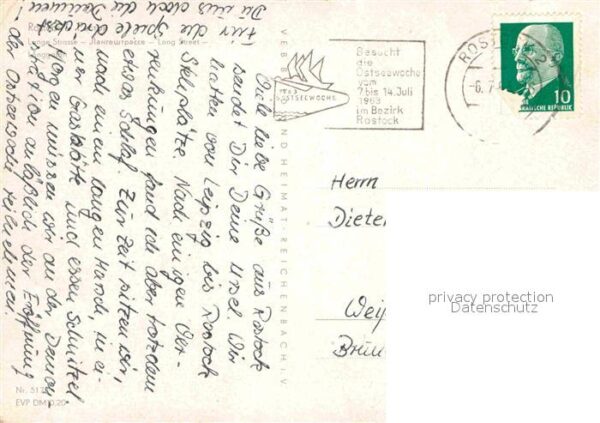 Lange Strasse — Лангештрассе — Long Street —
VERLAG BILD UND HEIMAT · REICHENBACH i. V.
Viele liebe Grüße aus Rostock
sendet Dir Deine Ursel. Wir
hatten von Leipzig bis Rostock
Sitzplätze. Nach einigen Ver-
renkungen fand ich aber trotzdem
etwas Schlaf. Zur Zeit sitzen wir,
nach einem langen Marsch, in ei-
ner Gaststätte und essen Schnitzel
Morgen müssen wir an der Demon-
stration anläßlich der Eröffnung
der Ostseewoche teilnehmen.
Für die Spiele drückst
Du uns doch die Daumen!
Nr. 51
EVP DM 0.20
1963
OSTSEEWOCHE
Besucht
die
Ostseewoche
vom
7. bis 14. Juli
1963
im Bezirk
Rostock
ROST
-6.7.
10
Herrn
Dieter
Wei
privacy protection
Datenschutz